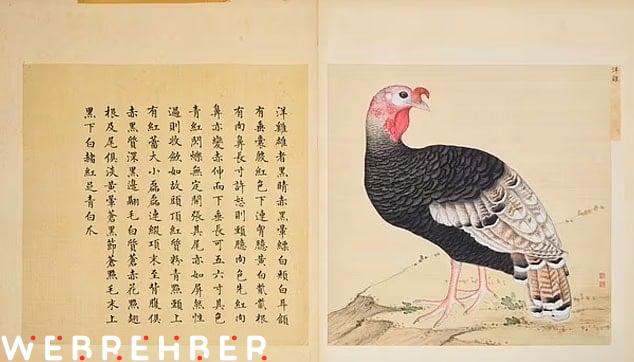 洋雞
洋雞雄者黑睛赤黑暈縹白頰白耳頷
有垂囊殷紅色下連胷臆黃白根
有肉鼻長寸許怒則頸臆肉色先紅肉
鼻亦變赤伸而下垂長可五六寸其色
青紅閃爍無定開張其尾亦如屏然性
過則收斂如故頭頂紅質粉青點頸上
有紅蕾大小磊磊連綴項末至背腹俱
赤黑質深黑邊翮毛白質蒼赤花點翅
根及尾俱淡黃暈蒼黑節蒼點毛末上
黑下白赭紅足青白爪
WEBREHBER